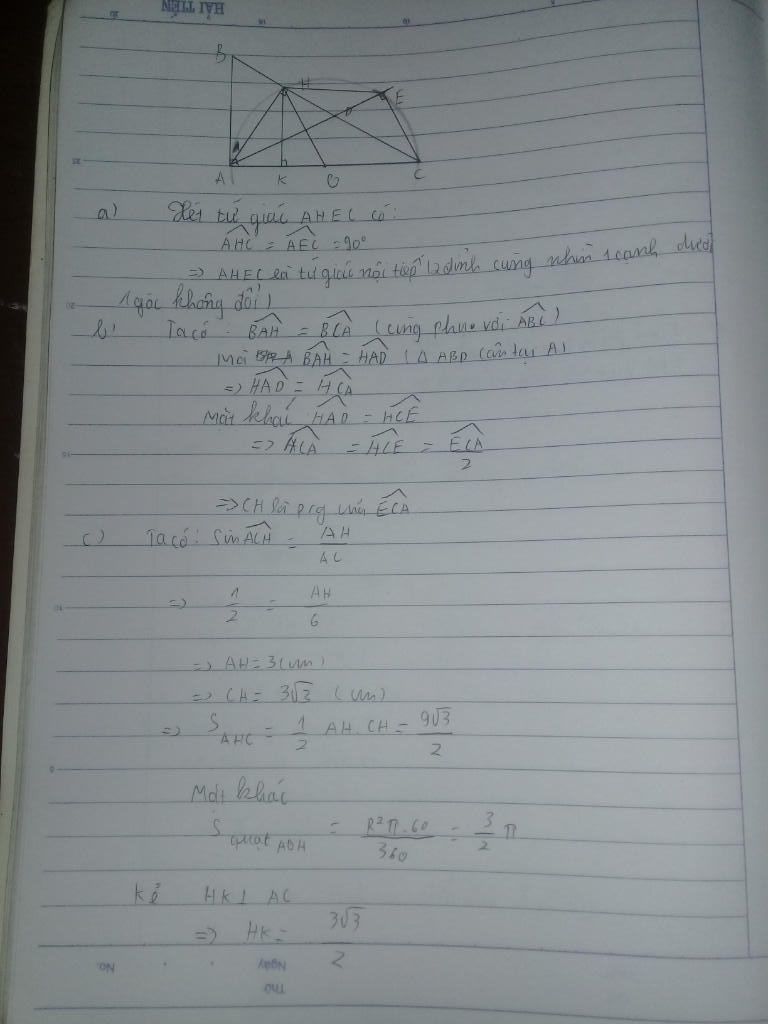 HẢI TIẾN
B
H
E
D
A
K
O
C
a) Xét tứ giác AHEC có:
AHC = AEC = 90°
=> AHEC là tứ giác nội tiếp (2 đỉnh cùng nhìn 1 cạnh dưới
1 góc không đổi)
b) Ta có: BAH = BCA (cùng phụ với ABC)
Mà BAH = HAD (Δ ABD cân tại A)
=> HAD = HCA
Mặt khác HAD = HCE
=> HCA = HCE = ECA/2
=> CH là p/g của ECA
c) Ta có: Sin ACH = AH/AC
=> 1/2 = AH/6
=> AH = 3 (cm)
=> CH = 3√3 (cm)
=> S AHC = 1/2 AH. CH = 9√3/2
Mặt khác
S quạt AOH = R²π.60/360 = 3/2 π
Kẻ HK ⊥ AC
=> HK = 3√3/2
No.
Ngày
Thứ